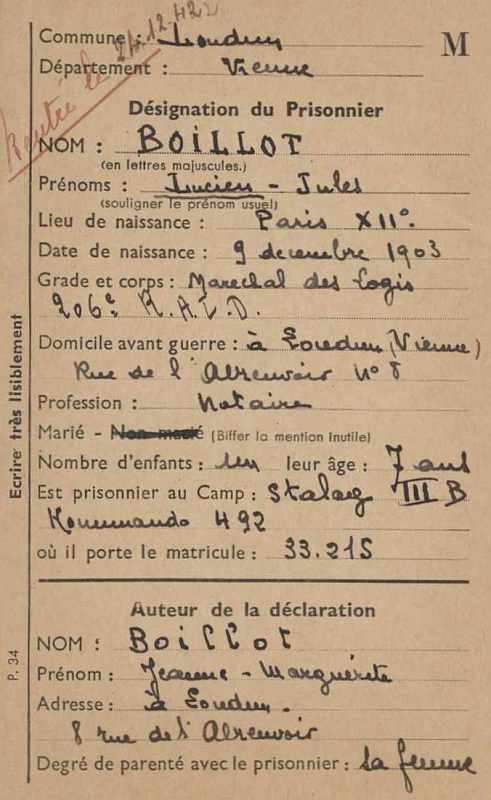 Rentré le 24.12.42
Commune : Loudun
M
Département : Vienne
Désignation du Prisonnier
NOM : BOILLOT
(en lettres majuscules.)
Prénoms : Lucien - Jules
(souligner le prénom usuel)
Lieu de naissance : Paris XIIe.
Date de naissance : 9 decembre 1903
Grade et corps : Marechal des Logis
206e R.A.L.D.
Domicile avant guerre : à Loudun (Vienne)
Rue de l'Abreuvoir N° 8
Profession : Notaire
Marié - Non marié (Biffer la mention inutile)
Nombre d'enfants : un leur âge : 7 ans
Est prisonnier au Camp : Stalag III B
Kommando 492
où il porte le matricule : 33.215
Auteur de la déclaration
NOM : Boillot
Prénom : Jeanne - Marguerite
Adresse : à Loudun.
8 rue de l'Abreuvoir
Degré de parenté avec le prisonnier : Sa femme
Ecrire très lisiblement
P. 34